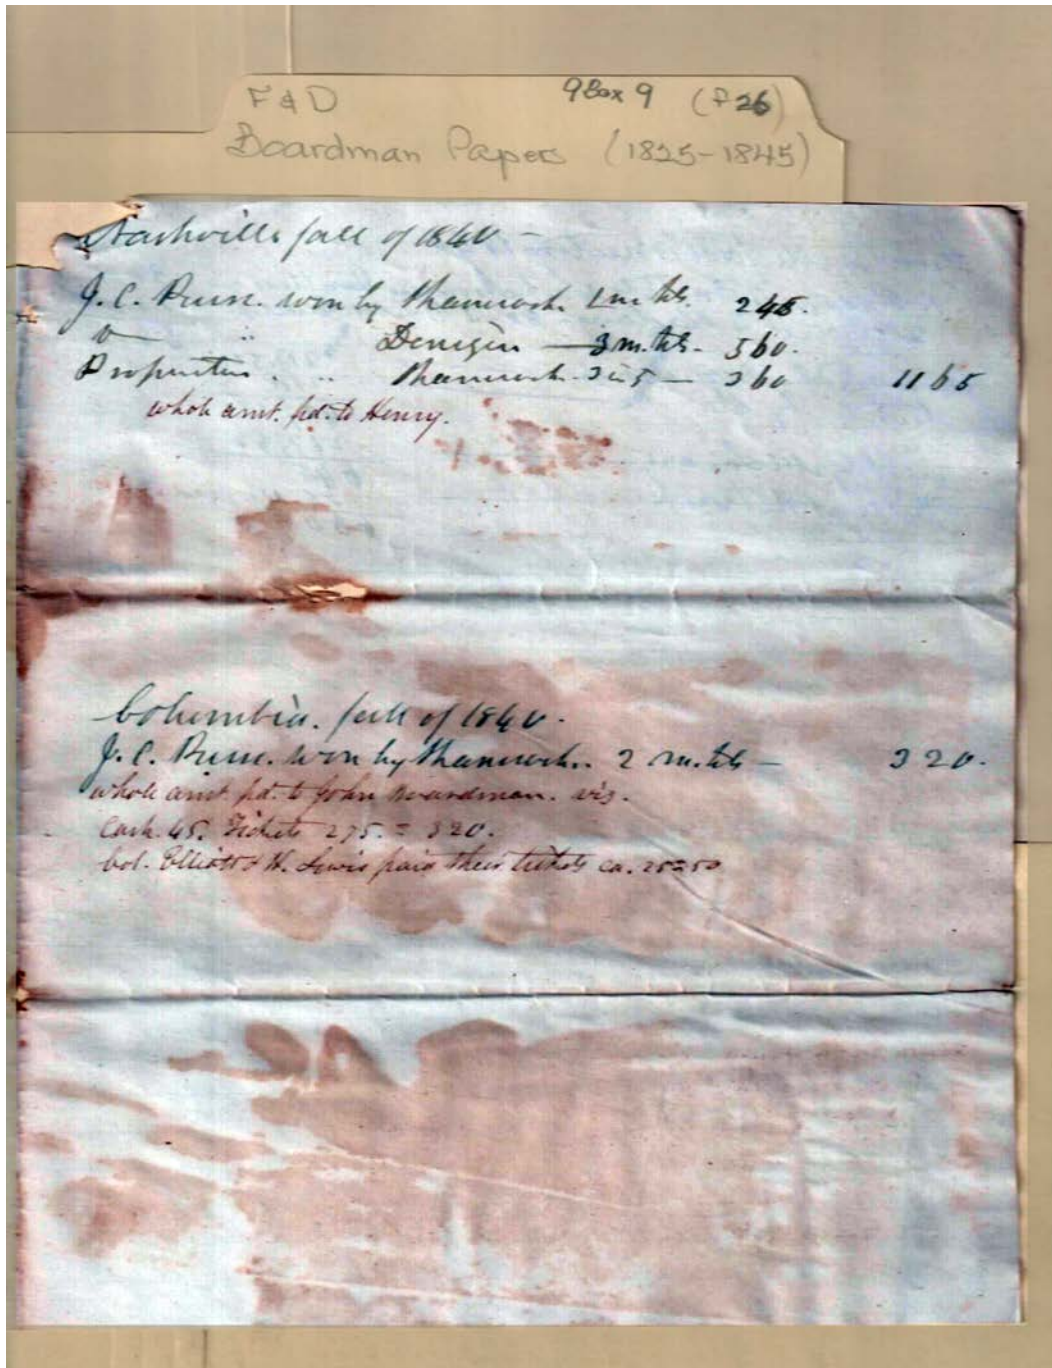 F & D 9 Box 9 (F 26)
Boardman Papers (1825-1845)
Nashville fall of 1840 -
J. C. Purse. won by Shamrock. 1 m. hts. 245.
" " Denizen — 3 m. hts - 560.
Proprietors. " Shamrock. 3 in 5 — 360 1165
whole amt. pd. to Henry.
Columbia. fall of 1840.
J. C. Purse. won by Shamrock. 2 m. hts — 320.
whole amt. pd. to John Boardman. viz.
Cash. 45. Tickets 275. = 320.
Col. Elliott & H. Lewis paid their tickets ea.